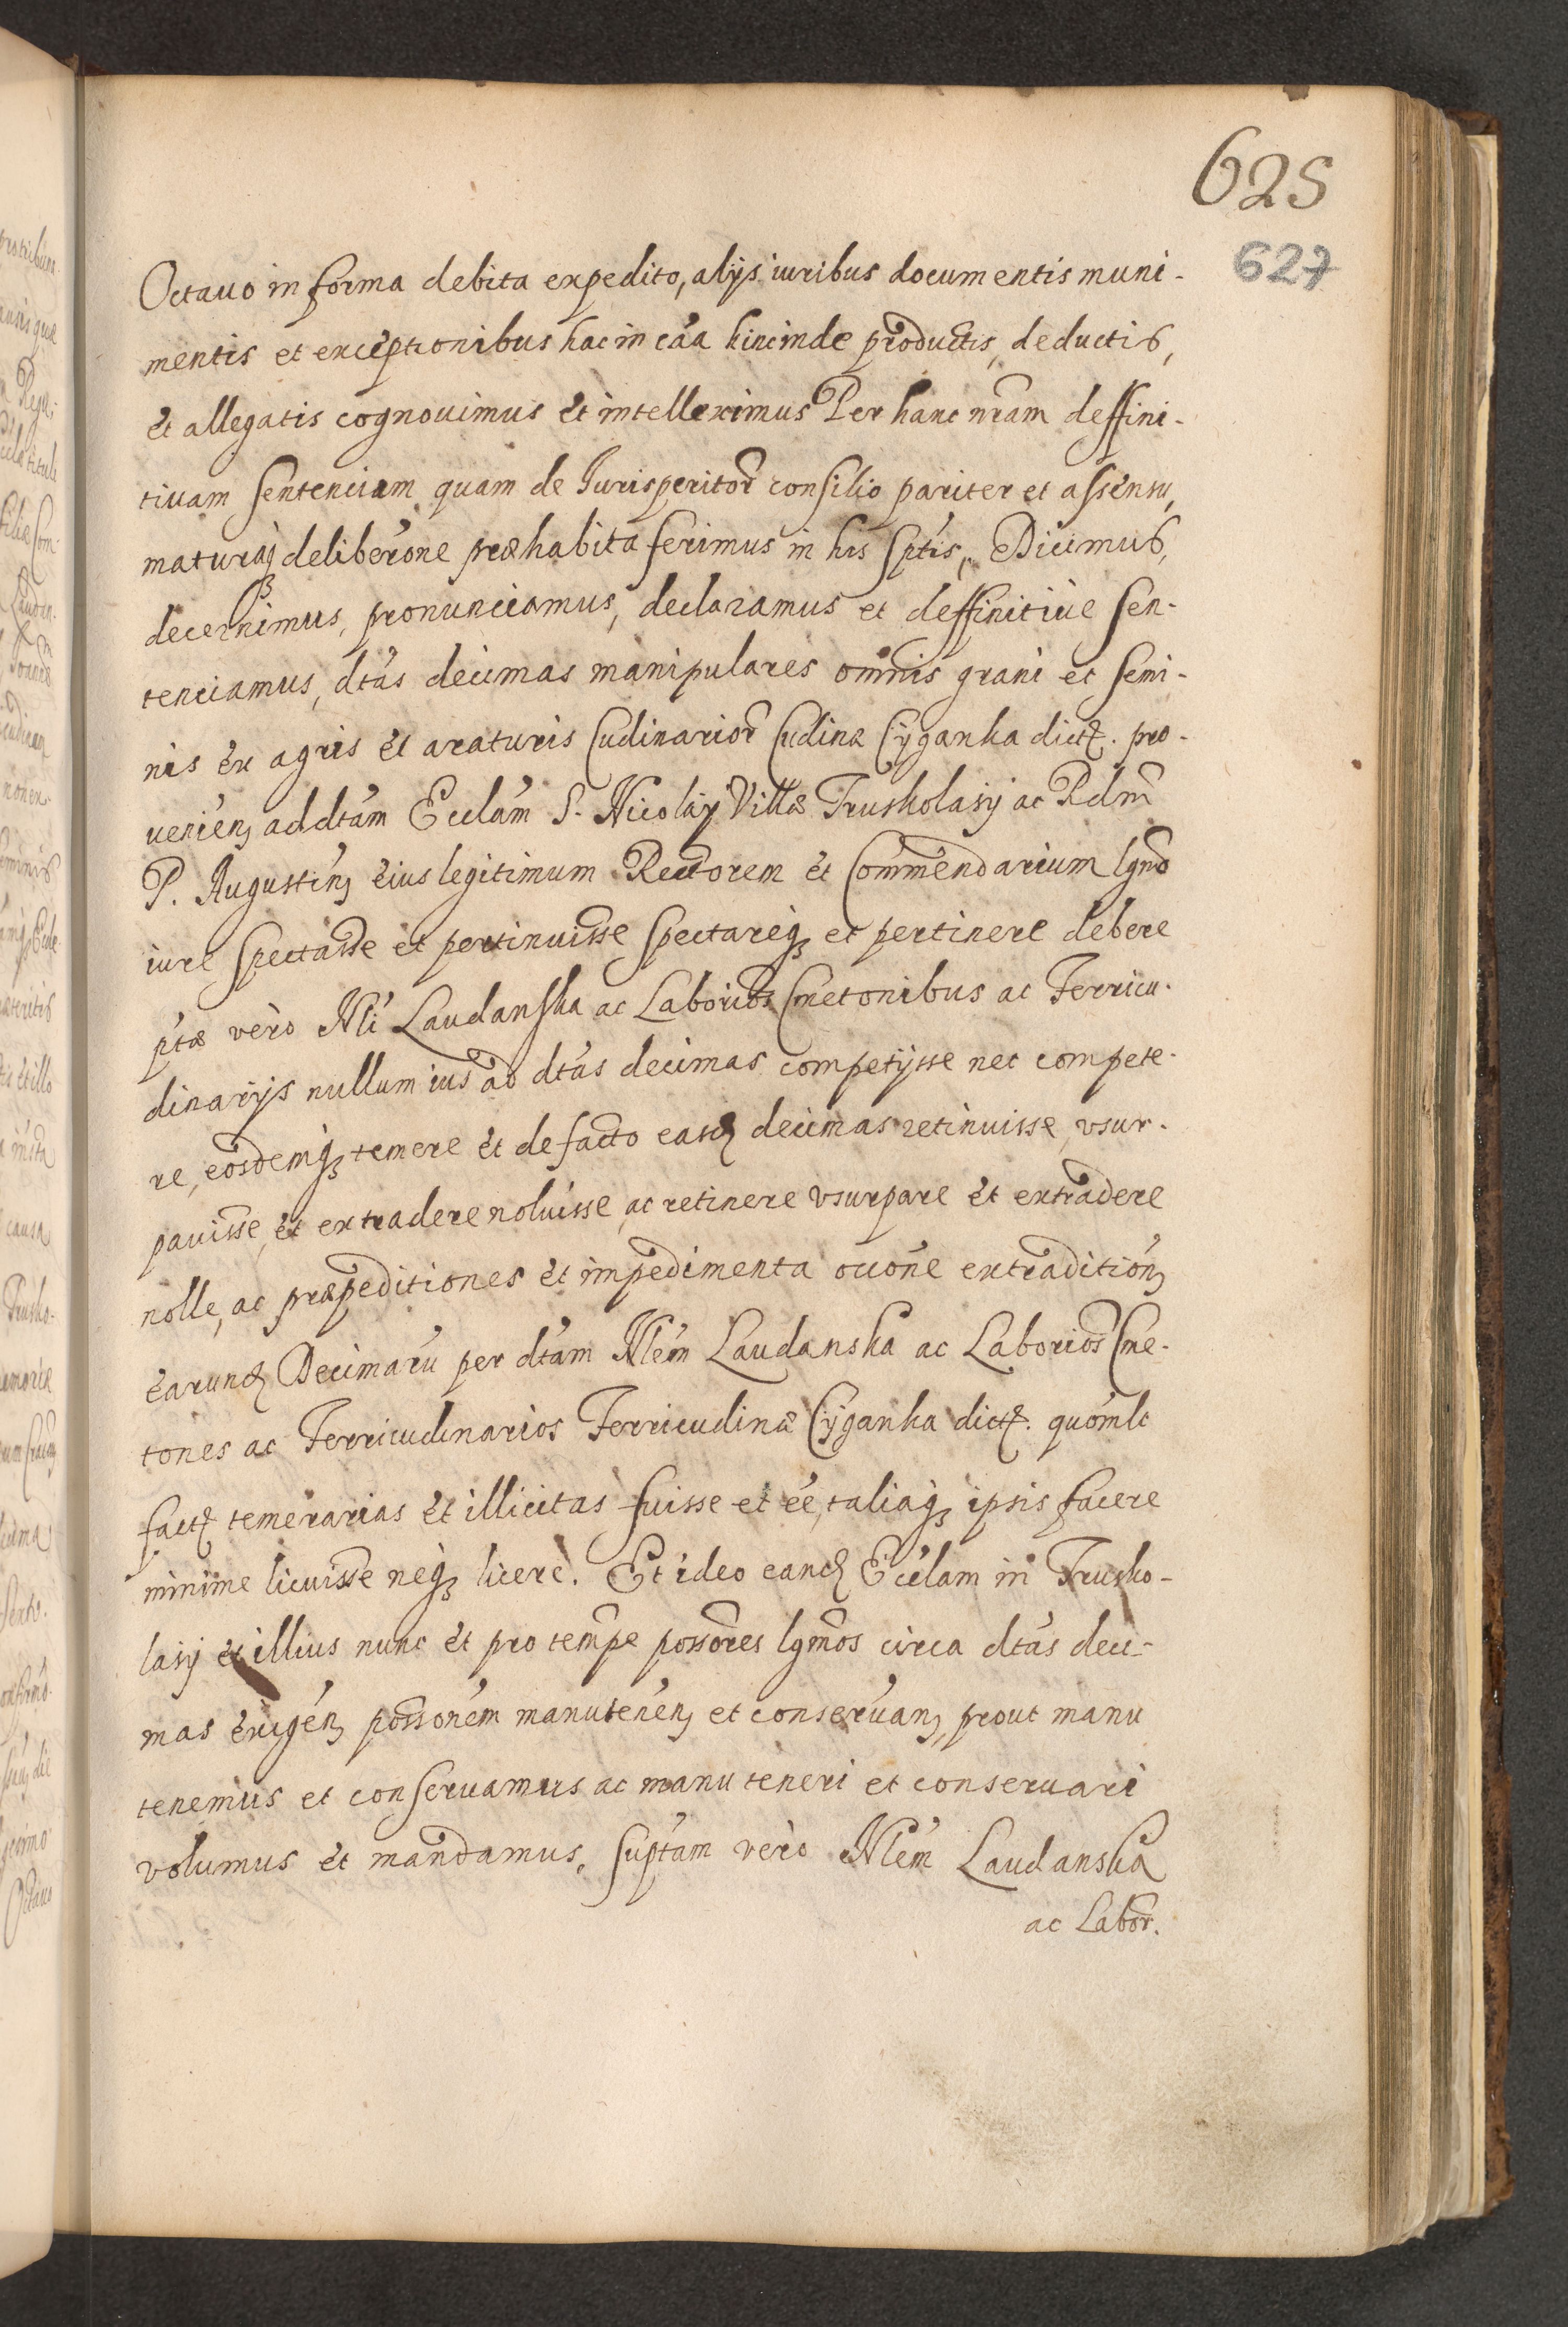 625
627
Octauo in forma debita expedito, alijs iuribus documentis muni-
mentis et exceptionibus hac in cãa hincinde productis, deductis,
et allegatis cognouimus et intelleximus Per hanc nr̃am deffini-
tiuam sentenciam quam de Jurisperitor̃ consilio pariter et assensu,
maturaq₃ deliber̃one præhabita ferimus in his sptis, Dicimus,
decernimus, pronunciamus, declaramus et deffinitiue sen-
tenciamus, dtas decimas manipulares omnis grani et semi-
nis ex agris et araturis Cudinarior̃ Cudinæ Cyganka dictę. pro-
venien₃ ad dtam Ecclam S. Nicolai Villæ Truskolasy ac Rdm̃
P. Augustin₃ eius legitimum Rectorem et Commendarium lgmo
iure spectasse et pertinuisse spectareq₃ et pertinere debere
ptæ verò Nli Laudanska ac Laborios Cmetonibus ac Terricu-
dinarijs nullum ius ad dtas decimas competijsse nec compete-
re, eosdemq₃ temere et de facto easd decimas retinuisse, vsur-
pauisse, et extradere noluisse ac retinere vsurpare et extradere
nolle, ac præpeditiones et impedimenta ouõne extradition₃
earund Decimarũ per dtam Nlem Laudanska ac Laborios Cme-
tones ac Terricudinarios Terricudinæ Cyganka dictę. quomlt
factę temerarias et illicitas fuisse et ee, taliaq₃ ipsis facere
minime licuisse neq₃ licere. Et ideo eand Ecclam in Trusko-
lasy et illius nunc et pro tempe possores lgmos circa dtas deci-
mas exigen₃ possonem manutenen₃ et conseruan₃, prout manu
tenemus et conseruamus ac manuteneri et conseruari
volumus et mandamus, suptam verò Nlem Laudanska
ac Labor.